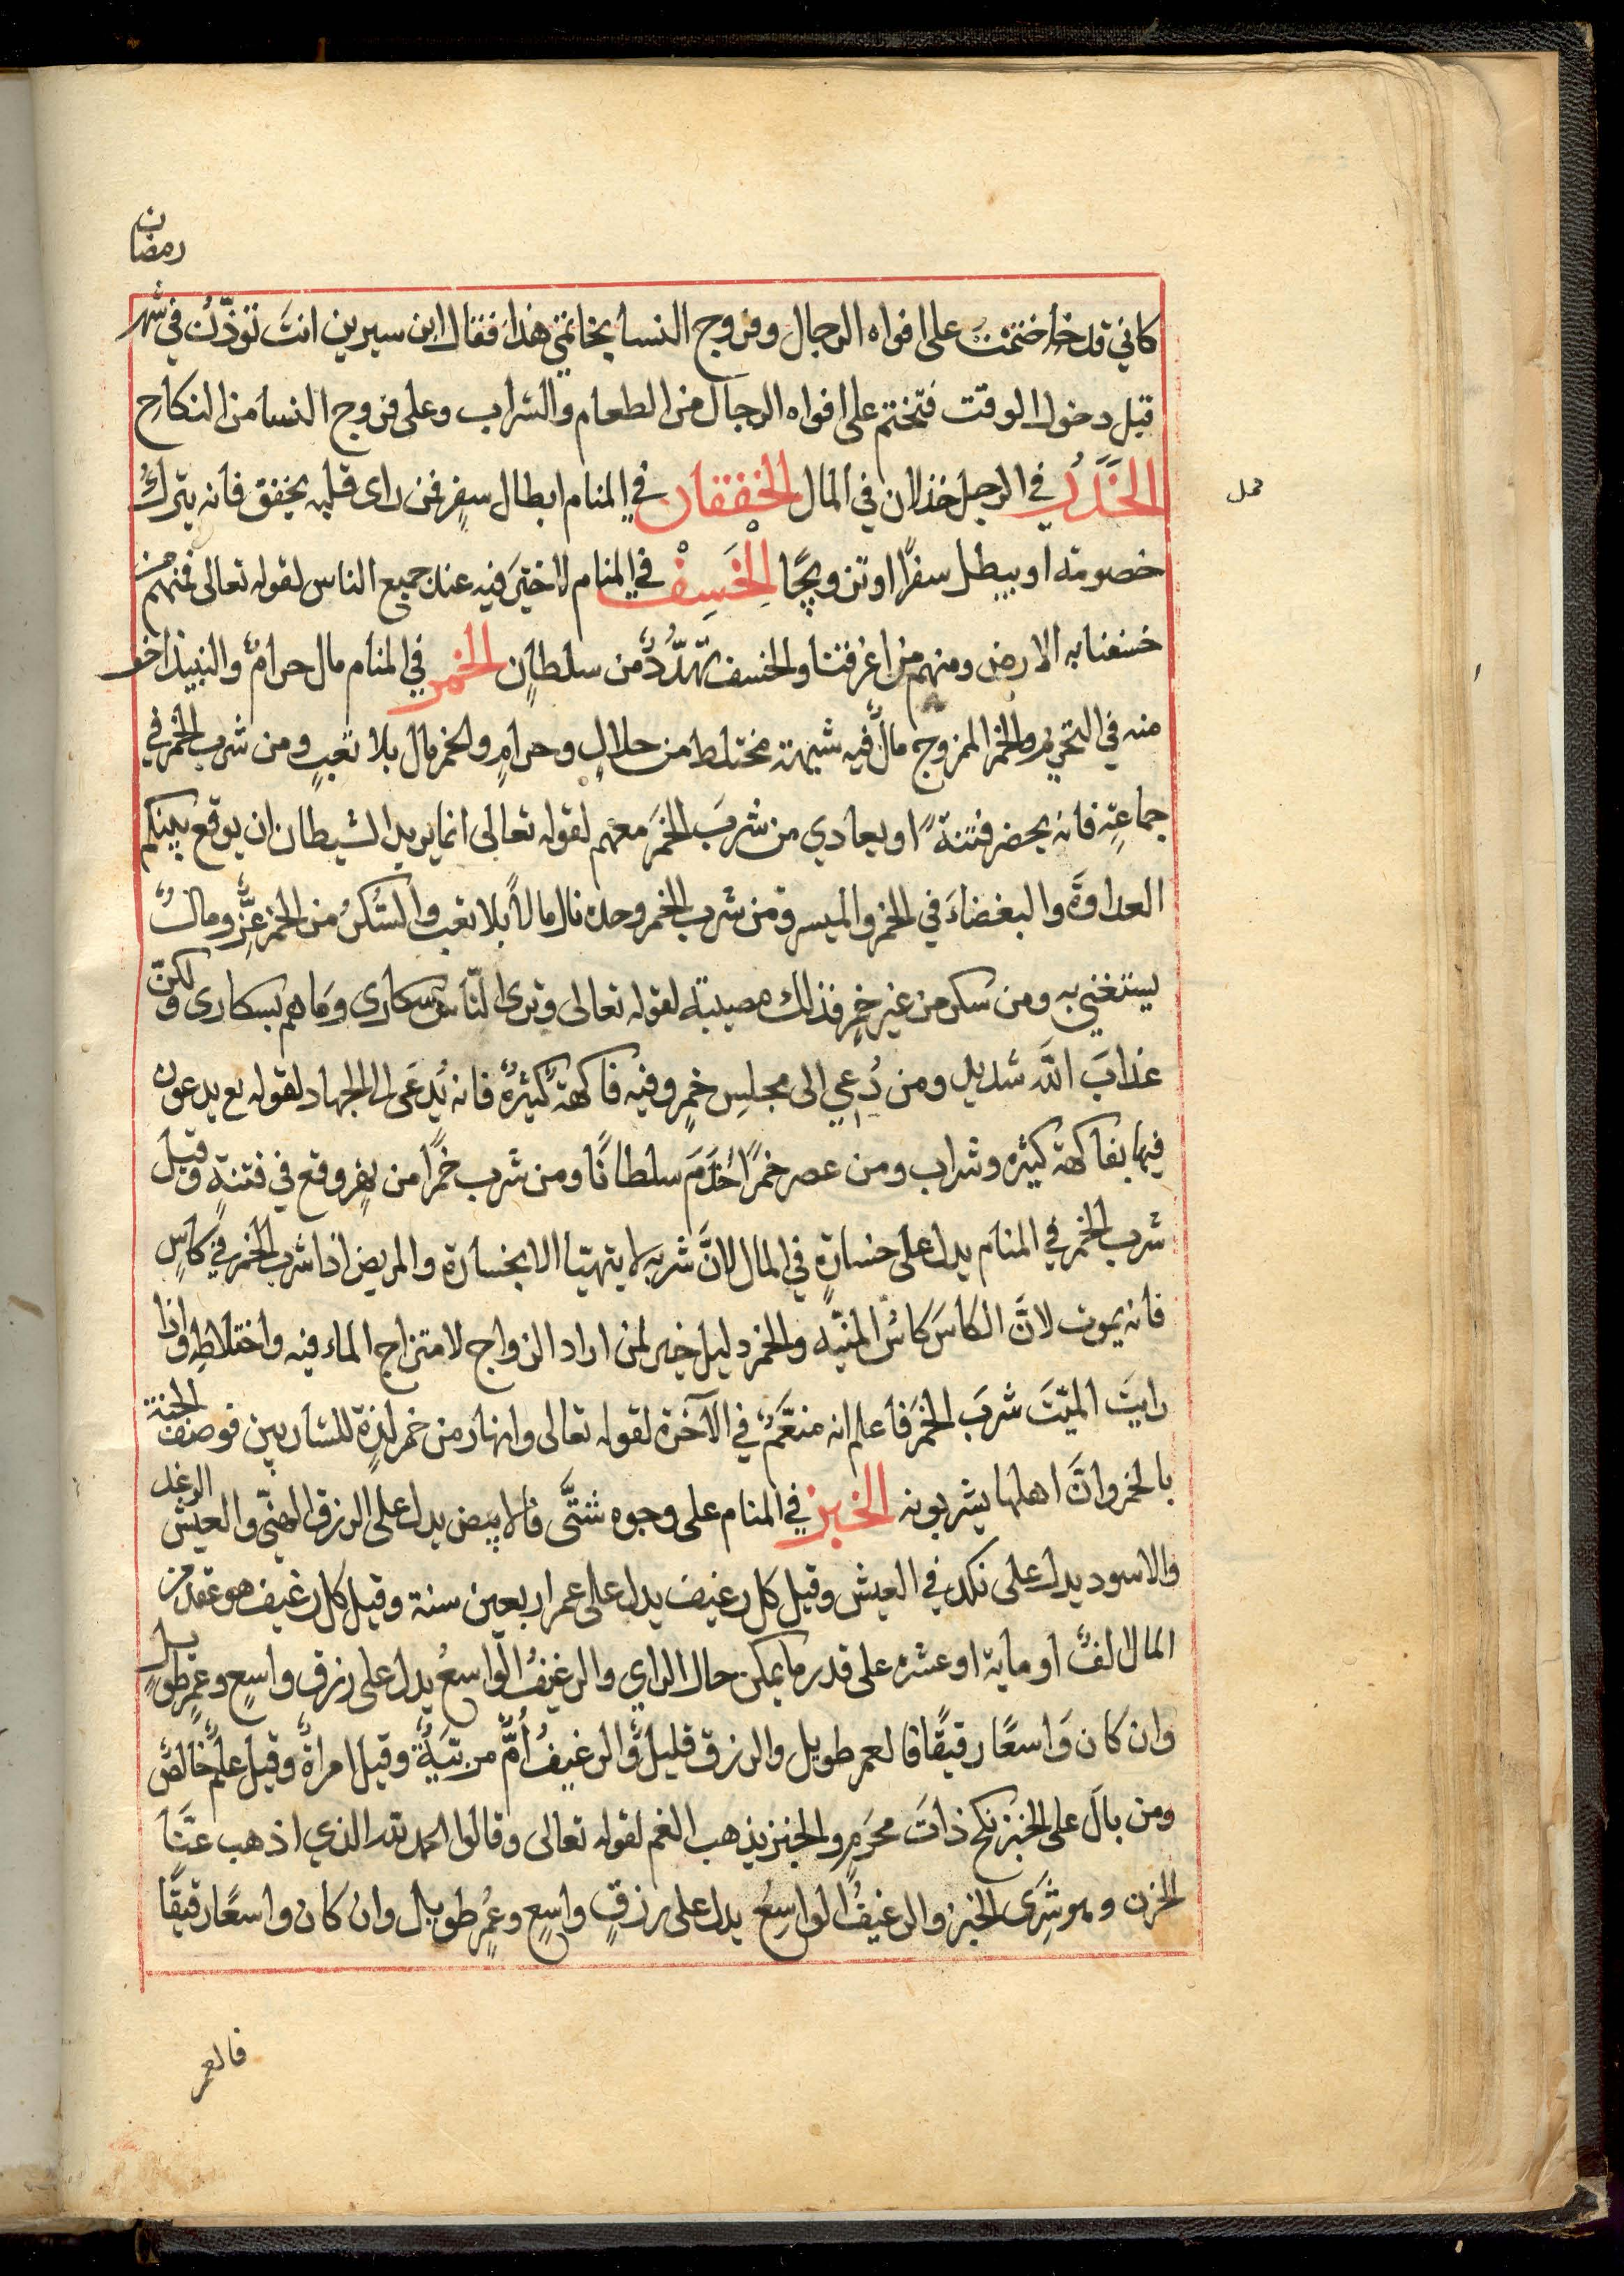 رمضان
كاني قد ختمت على افواه الرجال وفروج النسا بخاتمي هذا فقال ابن سيرين انتَ تؤذّنُ في شهر
قبل دخول الوقت فتختم على افواه الرجال من الطعام والشراب وعلى فروج النسا من النكاح
الخَدَرُ في الرجل خذلان في المال الخفقان في المنام ابطال سفرٍ فمن راى قلبه يخفق فانه يترك
خصومته او يبطل سفرًا او تزويجًا الخَسِفْ في المنام لا خيرَ فيه عند جميع الناس لقوله تعالى فمنهم من
خسفنا به الارض ومنهم من اغرقنا والخسف تهدّدٌ من سلطانٍ الخمر في المنام مال حرامٌ والنبيذ اخف
منه في التحريم والخمر الممزوج مالٌ فيه شبهة مختلط من حلالٍ وحرامٍ والخمر مال بلا تعبٍ ومن شرب الخمر في
جماعةٍ فانه يحضر فتنةً او يعادي من شربَ الخمرَ معهم لقوله تعالى انما يريد الشيطان ان يوقع بينكم
العداوةَ والبغضاءَ في الخمر والميسر ومن شرب الخمر وحده نال مالاً بلا تعب والسُّكرُ من الخمر عِزٌّ ومالٌ
يستغني به ومن سكر من غير خمرٍ فذلك مصيبة لقوله تعالى وترى النّاسَ سكارى وما هم بسكارى ولكنّ
عذابَ اللّه شديد ومن دُعي الى مجلسِ خمرٍ وفيه فاكهةٌ كثيرةٌ فانه يُدعَى الى الجهاد لقوله تع يدعون
فيها بفاكهة كثيره وشراب ومن عصر خمرًا خَدَمَ سلطانًا ومن شرب خمرًا من نهرٍ وقع في فتنةٍ وقيل
شرب الخمر في المنام يدل على خسارةٍ في المال لانَّ شربه لا يتهيّا الا بخسارة والمريض اذا شرب الخمر في كاسٍ
فانه يموت لانَّ الكاسَ كاسُ المنيّه والخمر دليل خير لمن اراد الزواج لامتزاج الماء فيه واختلاطِه واذا
رايتَ الميّتَ شربَ الخمرَ فاعلم انه منعَّمٌ في الآخرة لقوله تعالى وانهار من خمر لذةٍ للشاربين فوصف الجنة
بالخمر وانَّ اهلها يشربونه الخبز في المنام على وجوه شتَّى فالابيض يدل على الرزق الهنيّ والعيش الرغد
والاسود يدل على نكد في العيش وقيل كل رغيف يدل على عمر اربعين سنة وقيل كل رغيف هو عقد من
المال الفٌ او ماية او عشره على قدر ما يمكن حال الراي والرغيفُ الواسعُ يدل على رزق واسع وعمرٍ طويل
وان كان وَاسعًا رقيقًا فالعمر طويل والرزق قليلٌ والرغيفُ اُمٌّ مربّيَةٌ وقيل امراةٌ وقيل علمٌ خالصٌ
ومن بالَ على الخبز نكح ذاتَ محرَمٍ والخبز يذهب الغم لقوله تعالى وقالوا الحمد لله الذي اذهب عنَّا
الحزن وهو شِرَى الخبز والرغيفُ الواسِعُ يدل على رزقٍ واسِعٍ وعُمرٍ طويل وان كان واسعًا رقيقًا
فالعمر